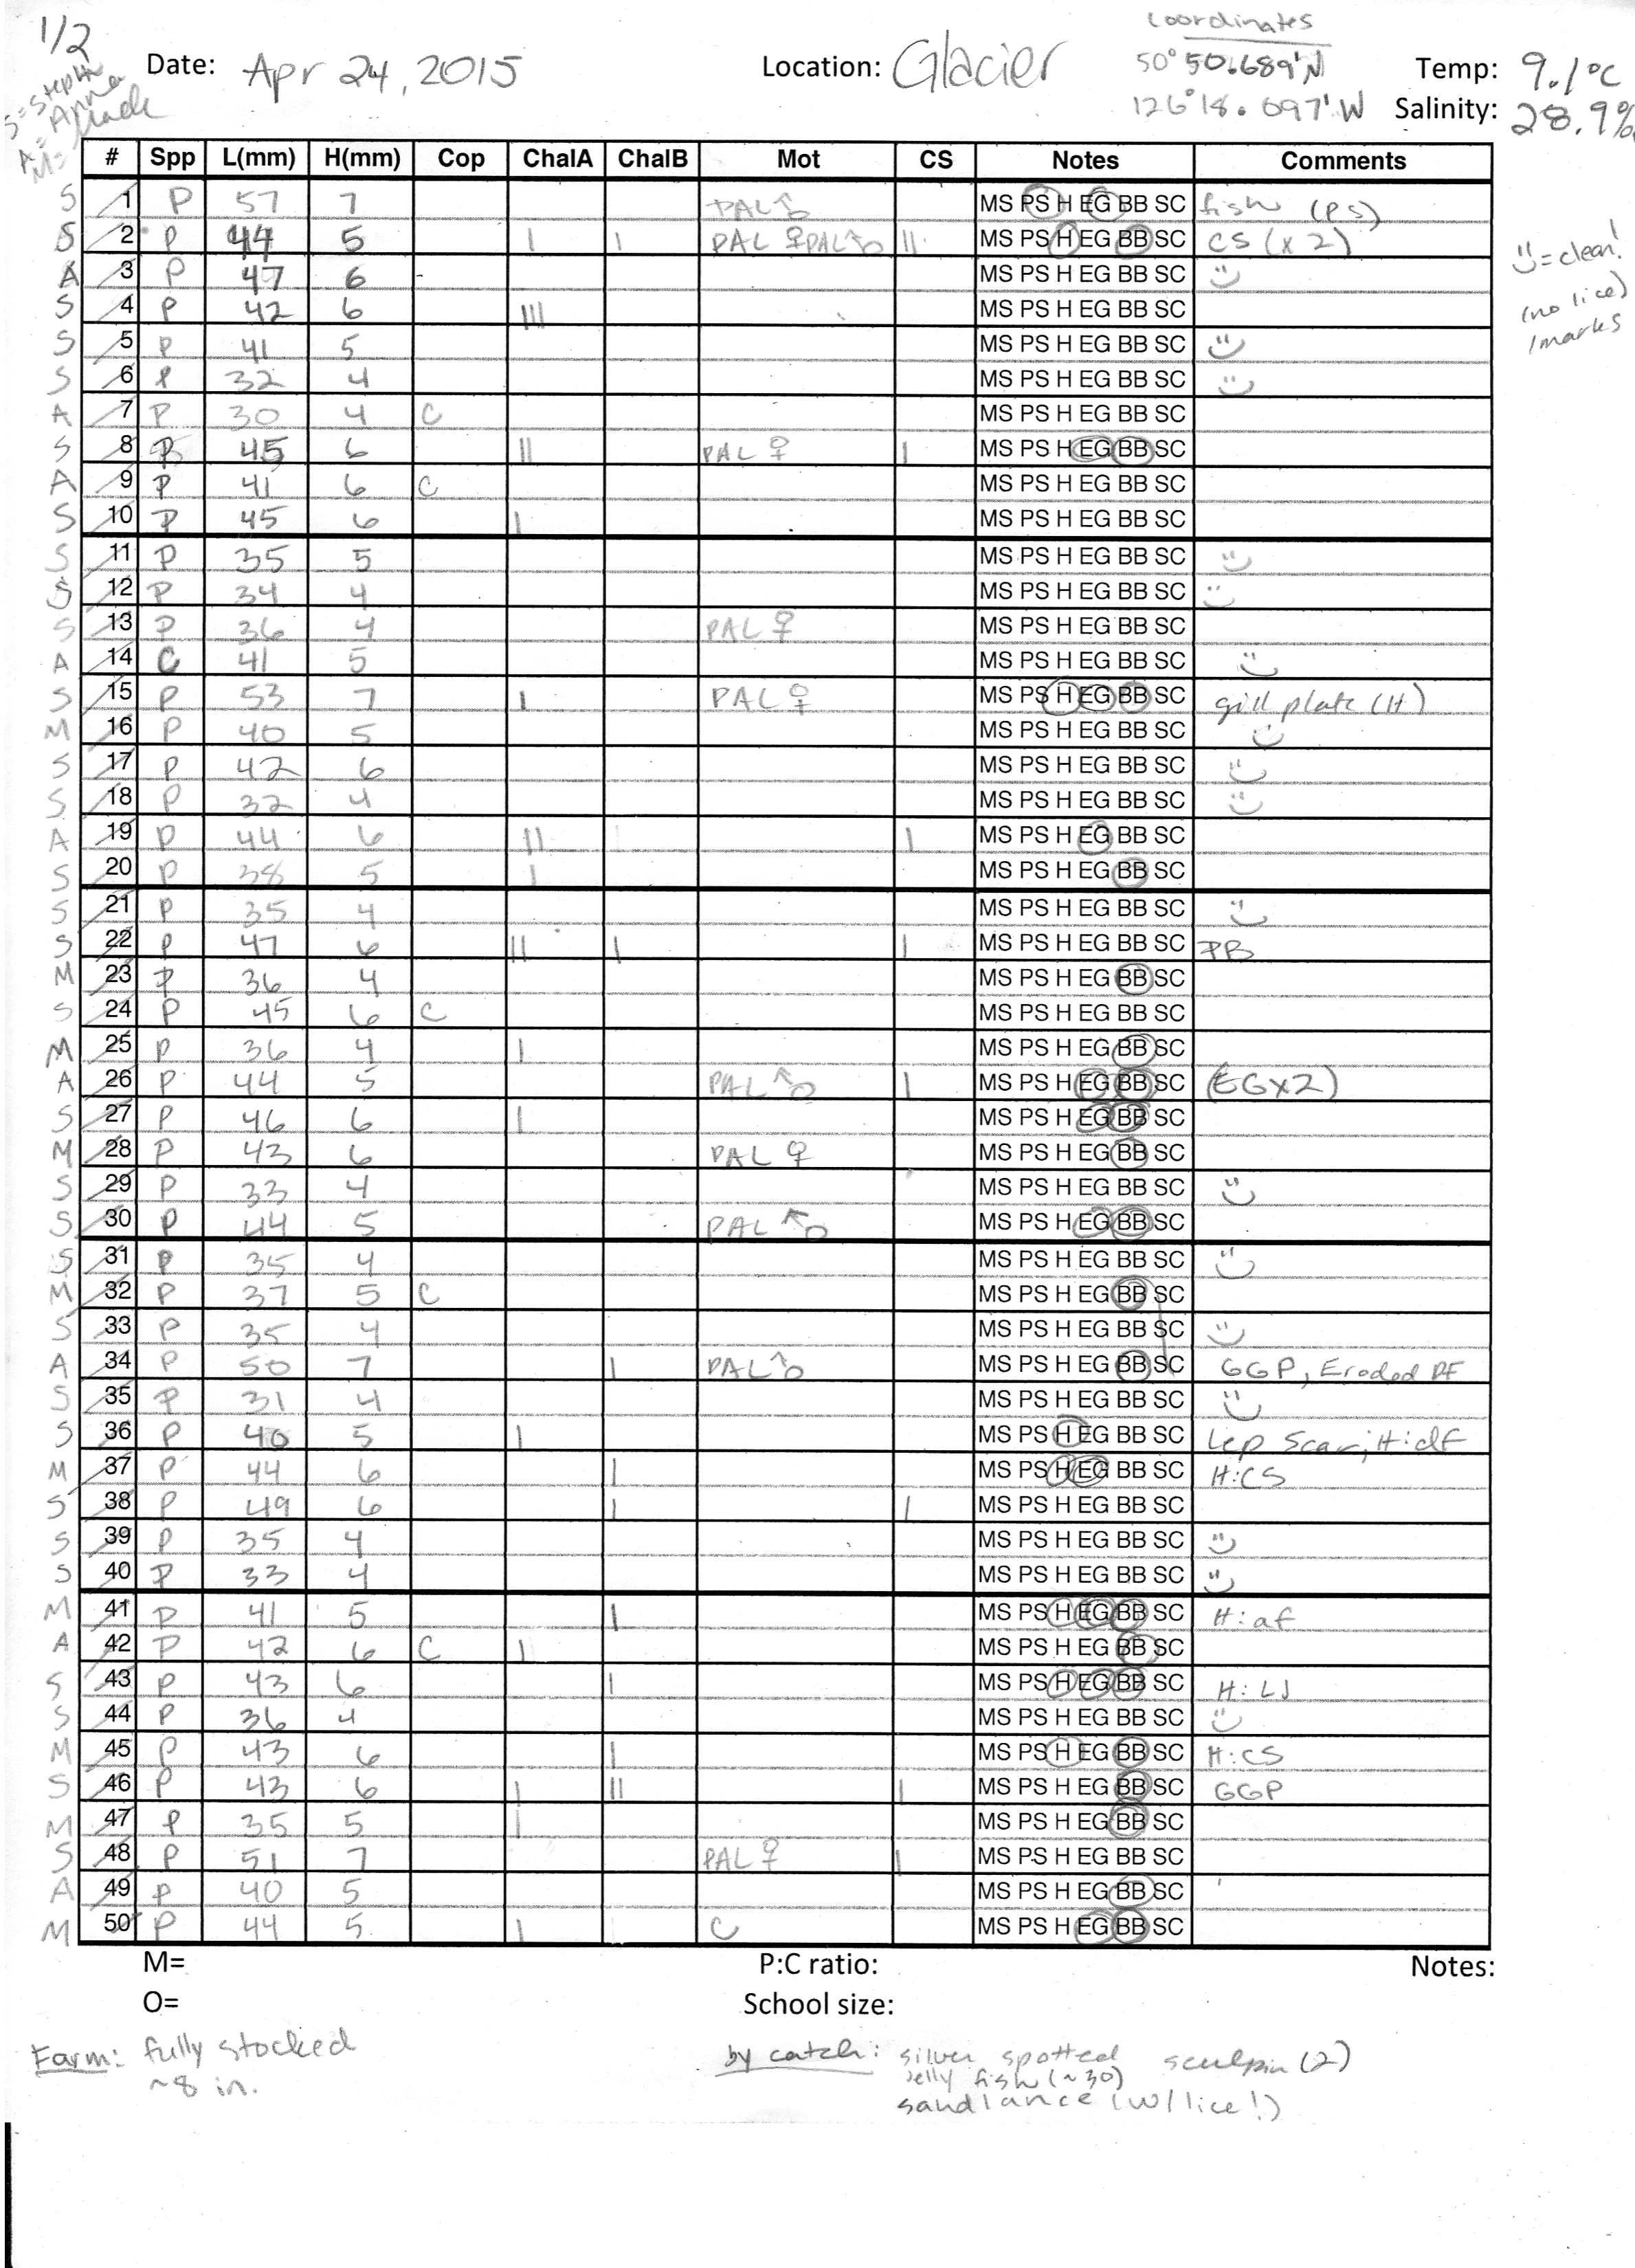 1/2
coordinates
Date: Apr 24, 2015 Location: Glacier 50° 50.689'N Temp: 9.1°C
126°18.097'W Salinity: 28.9%
S=Steph
A=Anna
M=
# Spp L(mm) H(mm) Cop ChalA ChalB Mot CS Notes Comments
S 1 P 57 7 PAL ♂ MS PS H EG BB SC fish (PS)
S 2 P 44 5 | | PAL ♀ PAL ♂ || MS PS H EG BB SC CS (x2)
A 3 P 47 6 MS PS H EG BB SC ☺
S 4 P 42 6 ||| MS PS H EG BB SC
S 5 P 41 5 MS PS H EG BB SC ☺
S 6 P 32 4 MS PS H EG BB SC ☺
A 7 P 30 4 C MS PS H EG BB SC
S 8 P 45 6 || PAL ♀ | MS PS H EG BB SC
A 9 P 41 6 C MS PS H EG BB SC
S 10 P 45 6 | MS PS H EG BB SC
S 11 P 35 5 MS PS H EG BB SC ☺
S 12 P 34 4 MS PS H EG BB SC ☺
S 13 P 36 4 PAL ♀ MS PS H EG BB SC
A 14 C 41 5 MS PS H EG BB SC ☺
S 15 P 53 7 | PAL ♀ MS PS H EG BB SC gill plate (H)
M 16 P 40 5 MS PS H EG BB SC ☺
S 17 P 42 6 MS PS H EG BB SC ☺
S 18 P 32 4 MS PS H EG BB SC ☺
A 19 P 44 6 || | MS PS H EG BB SC
S 20 P 38 5 | MS PS H EG BB SC
S 21 P 35 4 MS PS H EG BB SC ☺
S 22 P 47 6 || | | MS PS H EG BB SC PB
M 23 P 36 4 MS PS H EG BB SC
S 24 P 45 6 C MS PS H EG BB SC
M 25 P 36 4 | MS PS H EG BB SC
A 26 P 44 5 PAL ♂ | MS PS H EG BB SC (EGX2)
S 27 P 46 6 | MS PS H EG BB SC
M 28 P 43 6 PAL ♀ MS PS H EG BB SC
S 29 P 33 4 MS PS H EG BB SC ☺
S 30 P 44 5 PAL ♂ MS PS H EG BB SC
S 31 P 35 4 MS PS H EG BB SC ☺
M 32 P 37 5 C MS PS H EG BB SC
S 33 P 35 4 MS PS H EG BB SC ☺
A 34 P 50 7 | PAL ♂ MS PS H EG BB SC GGP, Eroded DF
S 35 P 31 4 MS PS H EG BB SC ☺
S 36 P 40 5 | MS PS H EG BB SC Lep Scar; H:df
M 37 P 44 6 | MS PS H EG BB SC H:CS
S 38 P 49 6 | | MS PS H EG BB SC
S 39 P 35 4 MS PS H EG BB SC ☺
S 40 P 33 4 MS PS H EG BB SC ☺
M 41 P 41 5 | MS PS H EG BB SC H:af
A 42 P 42 6 C | MS PS H EG BB SC
S 43 P 43 6 | MS PS H EG BB SC H:LJ
S 44 P 36 4 MS PS H EG BB SC ☺
M 45 P 43 6 | MS PS H EG BB SC H:CS
S 46 P 43 6 | || | MS PS H EG BB SC GGP
M 47 P 35 5 | MS PS H EG BB SC
S 48 P 51 7 PAL ♀ | MS PS H EG BB SC
A 49 P 40 5 MS PS H EG BB SC
M 50 P 44 5 | C MS PS H EG BB SC
☺=clean!
(no lice)
/marks
M= P:C ratio: Notes:
O= School size:
Farm: fully stocked
~8 in.
by catch: silver spotted sculpin (2)
Jelly fish (~30)
sandlance (w/lice!)